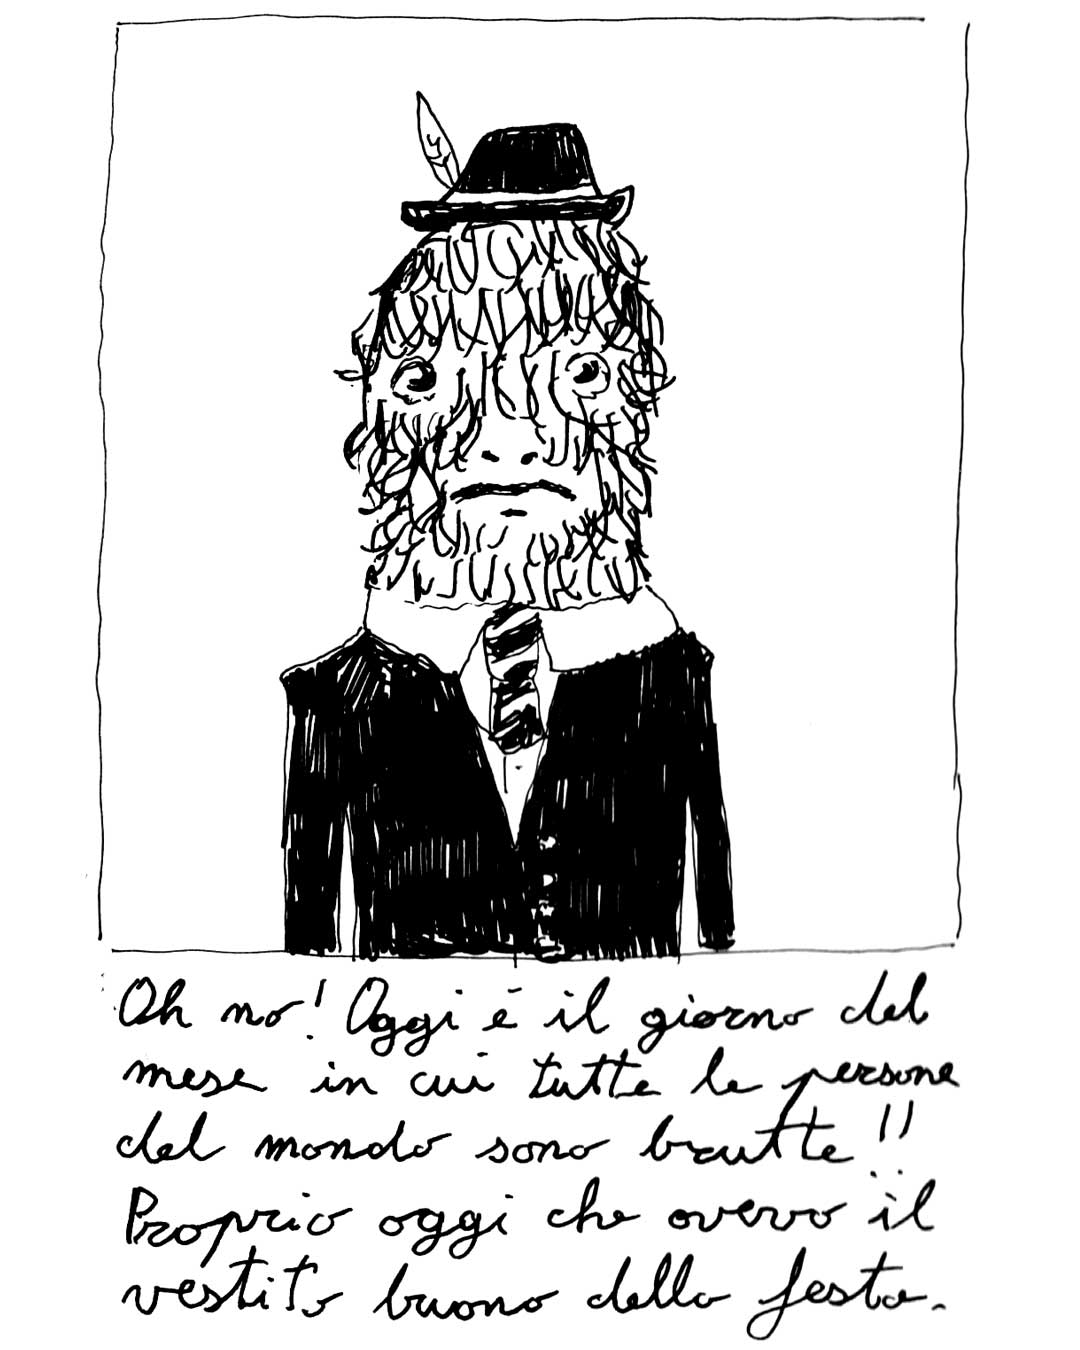 Oh no! Oggi é il giorno del
mese in cui tutte le persone
del mondo sono brutte!!
Proprio oggi che avevo il
vestito buono della festa.